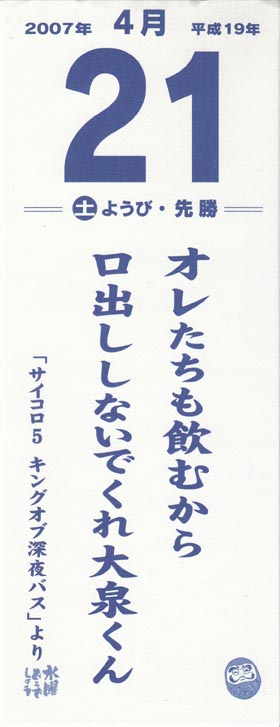 2007年 4月 平成19年
21
土ようび・先勝
オレたちも飲むから
口出ししないでくれ大泉くん
「サイコロ5 キングオブ深夜バス」より
水曜
どうで
しょう